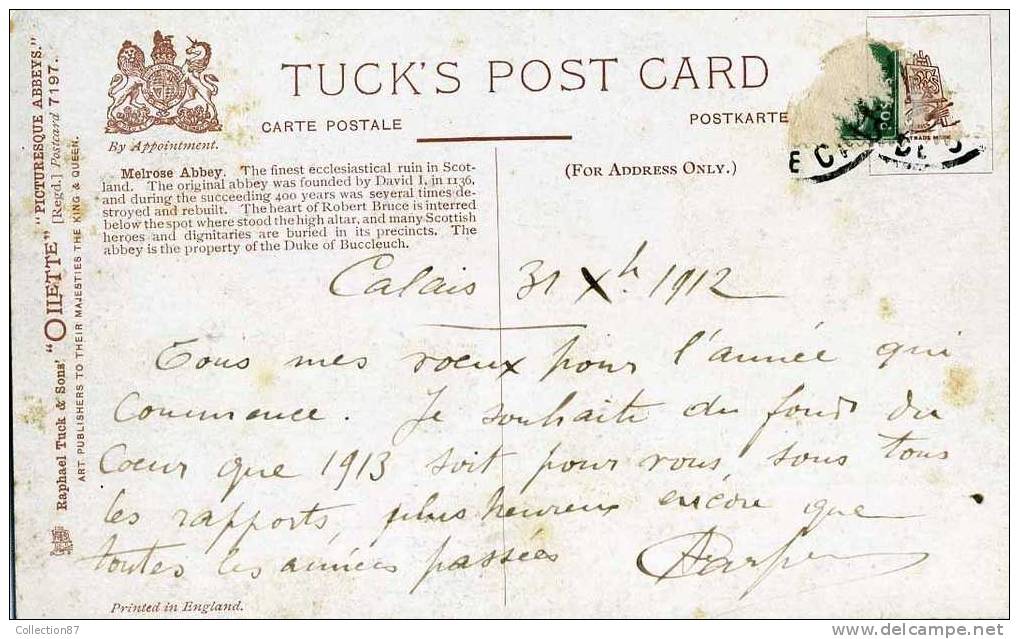 TUCK'S POST CARD
CARTE POSTALE
POSTKARTE
By Appointment.
(FOR ADDRESS ONLY.)
TRADE MARK
Raphael Tuck & Sons' "OILETTE" "PICTURESQUE ABBEYS."
[Regd.] Postcard 7197.
ART PUBLISHERS TO THEIR MAJESTIES THE KING & QUEEN.
Melrose Abbey. The finest ecclesiastical ruin in Scot-
land. The original abbey was founded by David I. in 1136,
and during the succeeding 400 years was several times de-
stroyed and rebuilt. The heart of Robert Bruce is interred
below the spot where stood the high altar, and many Scottish
heroes and dignitaries are buried in its precincts. The
abbey is the property of the Duke of Buccleuch.
Calais 31 Xb 1912
Tous mes voeux pour l'année qui
commence. Je souhaite du fond du
Coeur que 1913 soit pour vous, sous tous
les rapports, plus heureux encore que
toutes les années passées
Printed in England.
Collection87
delcampe.net